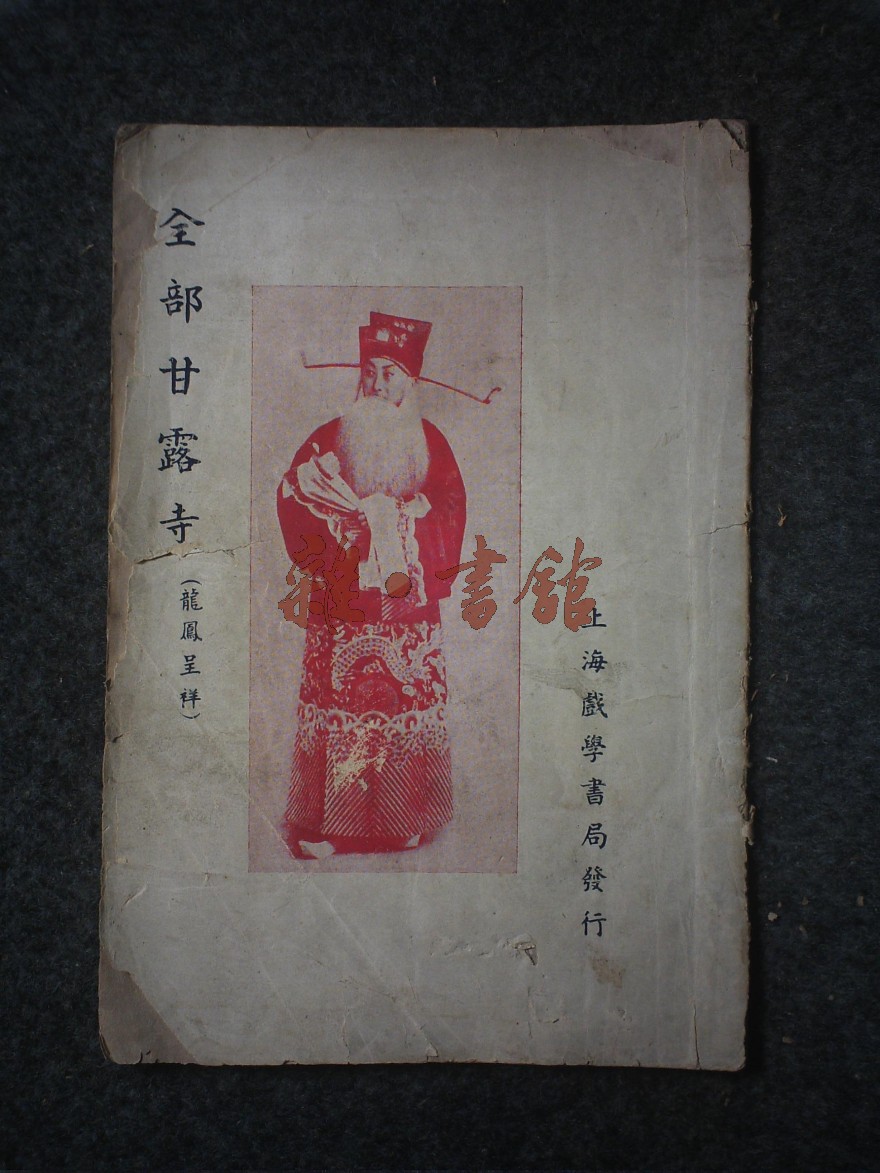 全部甘露寺
(龍鳳呈祥)
雜·書館
上海戲學書局發行